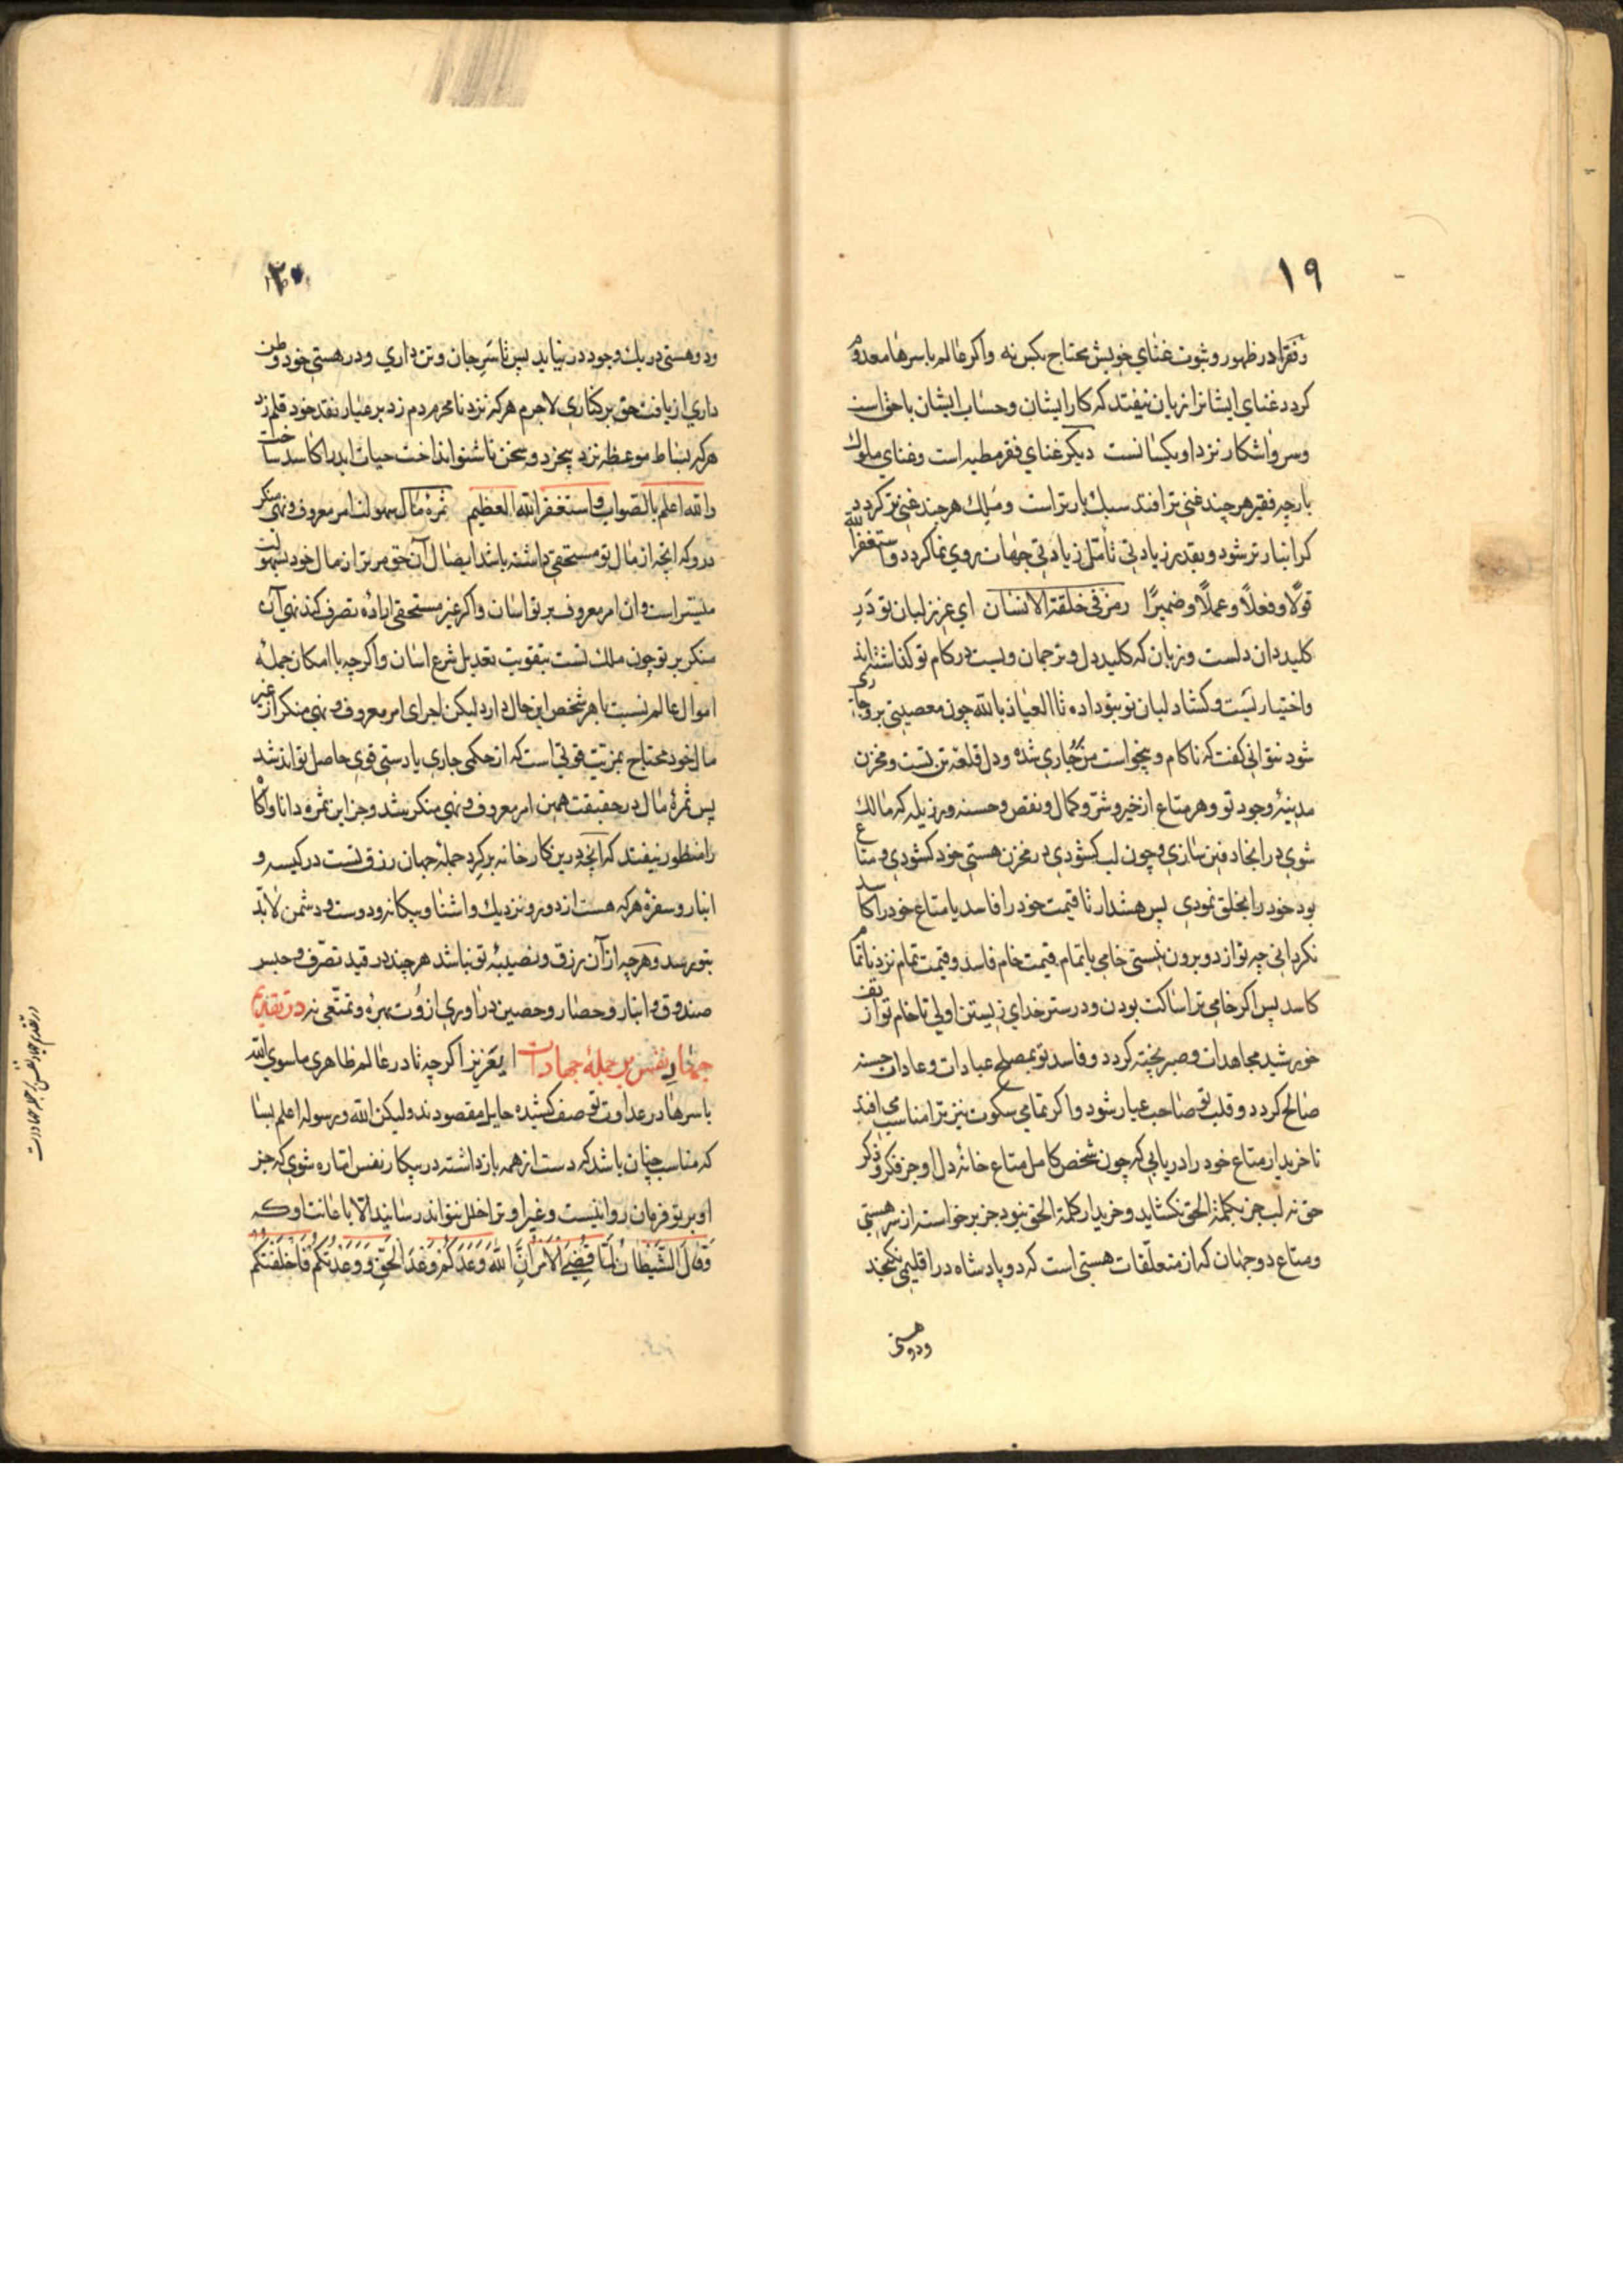 ١٩
و فقرا در ظهور و ثبوت غنای خویش محتاج بکس نه و اکر عالم باسرها معدوم
کردد غنای ایشانرا زیان نیفتد که کار ایشان و حساب ایشان با حق است
و سر و اشکار نزد او یکسانست دیکر غنای فقر مطیه است و غنای ملوک
بارچه فقیر هر چند غنی تر افتد سبک بار تر است و ملک هر چند غنی تر کردد
کرانبار تر شود و بقدر زیادتی تامّل زیادتی جهان روی نما کردد و استغفر الله
قولًا و فعلًا و عملًا و ضمیرًا رمز فی خلقة الانسان ای عزیز لبان تو در
کلیددان دلست و زبان که کلید دل و ترجمان ویست در کام تو کذاشته‌اند
و اختیار بست و کشاد لبان تو بتو داده تا العیاذ بالله چون معصیتی بر و جاری
شود نتوانی کفت که ناکام و بیخواست من جاری شده و دل قلعه تن تست و مخزن
مدینهٔ وجود تو و هر متاع از خیر و شرّ و کمال و نقص و حسنه و رزیله که مالک
شوی در انجا دفین سازی و چون لب کشودی در مخزن هستی خود کشودی و متاع
بود خود را بخلق نمودی پس هشدار تا قیمت خود را فاسد یا متاع خود را کاسد
نکردانی چه تو از دو برون نیستی خامی یا تمام قیمت خام فاسد و قیمت تمام نزد ناتمام
کاسد پس اکر خامی ترا ساکت بودن و در ستر خدای زیستن اولی تا خام تو از تف
خورشید مجاهدات و صبر پخته کردد و فاسد تو بمصلح عبادات و عادات حسنه
صالح کردد و قلب تو صاحب عیار شود و اکر تمامی سکوت نیز ترا مناسب می افتد
تا خریدار متاع خود را دریابی که چون شخص کامل متاع خانهٔ دل او جز فکر و ذکر
حق نه لب جز بکلمة الحق نکشاید و خریدار کلمة الحق نبود جز برخواسته از سر هستی
و متاع دو جهان که از متعلّقات هستی است که دو پادشاه در اقلیمی نکنجد
و دو هستی
٢٠
و دو هستی در یک وجود در نیاید پس تا سَرِ جان و تن داری و در هستی خود وطن
داری از یافت حق بر کناری لاجرم هر که نزد نامحرم مردم زد بر عیار نقد خود قلم زد
هر که بساط موعظه نزد بیخرد و سخن ناشنو انداخت حیات ابد را کاسد ساخت
والله اعلم بالصواب و استغفر الله العظیم ثمرهٔ مال سهولت امر معروف و نهی منکر
درو که انچه از مال تو مستحقی داشته باشد ایصال آن حق مر ترا از مال خود بسهولت
میسّر است و ان امر معروف بر تو اسان و اکر غیر مستحقی اراده تصرف کند نهی آن
منکر بر تو چون ملک تست بتقویت تعدیل شرع اسان و اکرچه با امکان جملهٔ
اموال عالم نسبت با هر شخص این حال دارد لیکن اجرای امر معروف و نهی منکر از غیر
مال خود محتاج بمزیّت قوتی است که از حکمی جاری یا دستی قوی حاصل تواند شد
پس ثمرهٔ مال در حقیقت همین امر معروف و نهی منکر بشد و جز این ثمره دانا و اکاه
را منظور نیفتد که انچه درین کارخانه برکرد جملهٔ جهان رزق تست در کیسه و
انبار و سفرهٔ هر که هست از دور و نزدیک و اشنا و بیکانه و دوست و دشمن لابدّ
بتو برسد و هرچه از آن رزق و نصیبهٔ تو نباشد هر چند در قید تصرّف و حبس
صندوق و انبار و حصار و حصین در اوری از وت بهره و تمتّعی نه در تقدیم
جهاد نفس بر جملهٔ جهادات ای عزیز اکرچه تا در عالم ظاهری ما سوی الله
باسرها در عداوت تو صف کشیده حایل مقصودند ولیکن الله و رسوله اعلم بسا
که مناسب چنان باشد که دست از همه بازداشته در پیکار نفس اماره شوی که جز
او بر تو فرمان روا نیست و غیر او ترا خلل نتواند رسانید الّا باعانت او که
وَقَالَ الشَّیْطَانُ لَمَّا قُضِیَ الْاَمْرُ اِنَّ اللهَ وَعَدَکُمْ وَعْدَ الْحَقِّ وَوَعَدْتُکُمْ فَاَخْلَفْتُکُمْ
در تقدیم جهاد نفس بر جمله جهادات